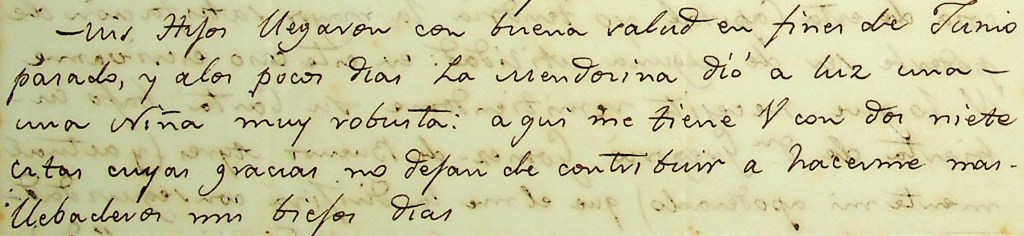 Mis Hijos llegaron con buena salud en fines de Junio
pasado, y alos pocos dias La Mendosina dió a luz una-
una Niña muy robusta: aqui me tiene V con dos niete
citas cuyas gracias no dejan de contribuir a hacerme mas-
llebaderos mis biejos dias